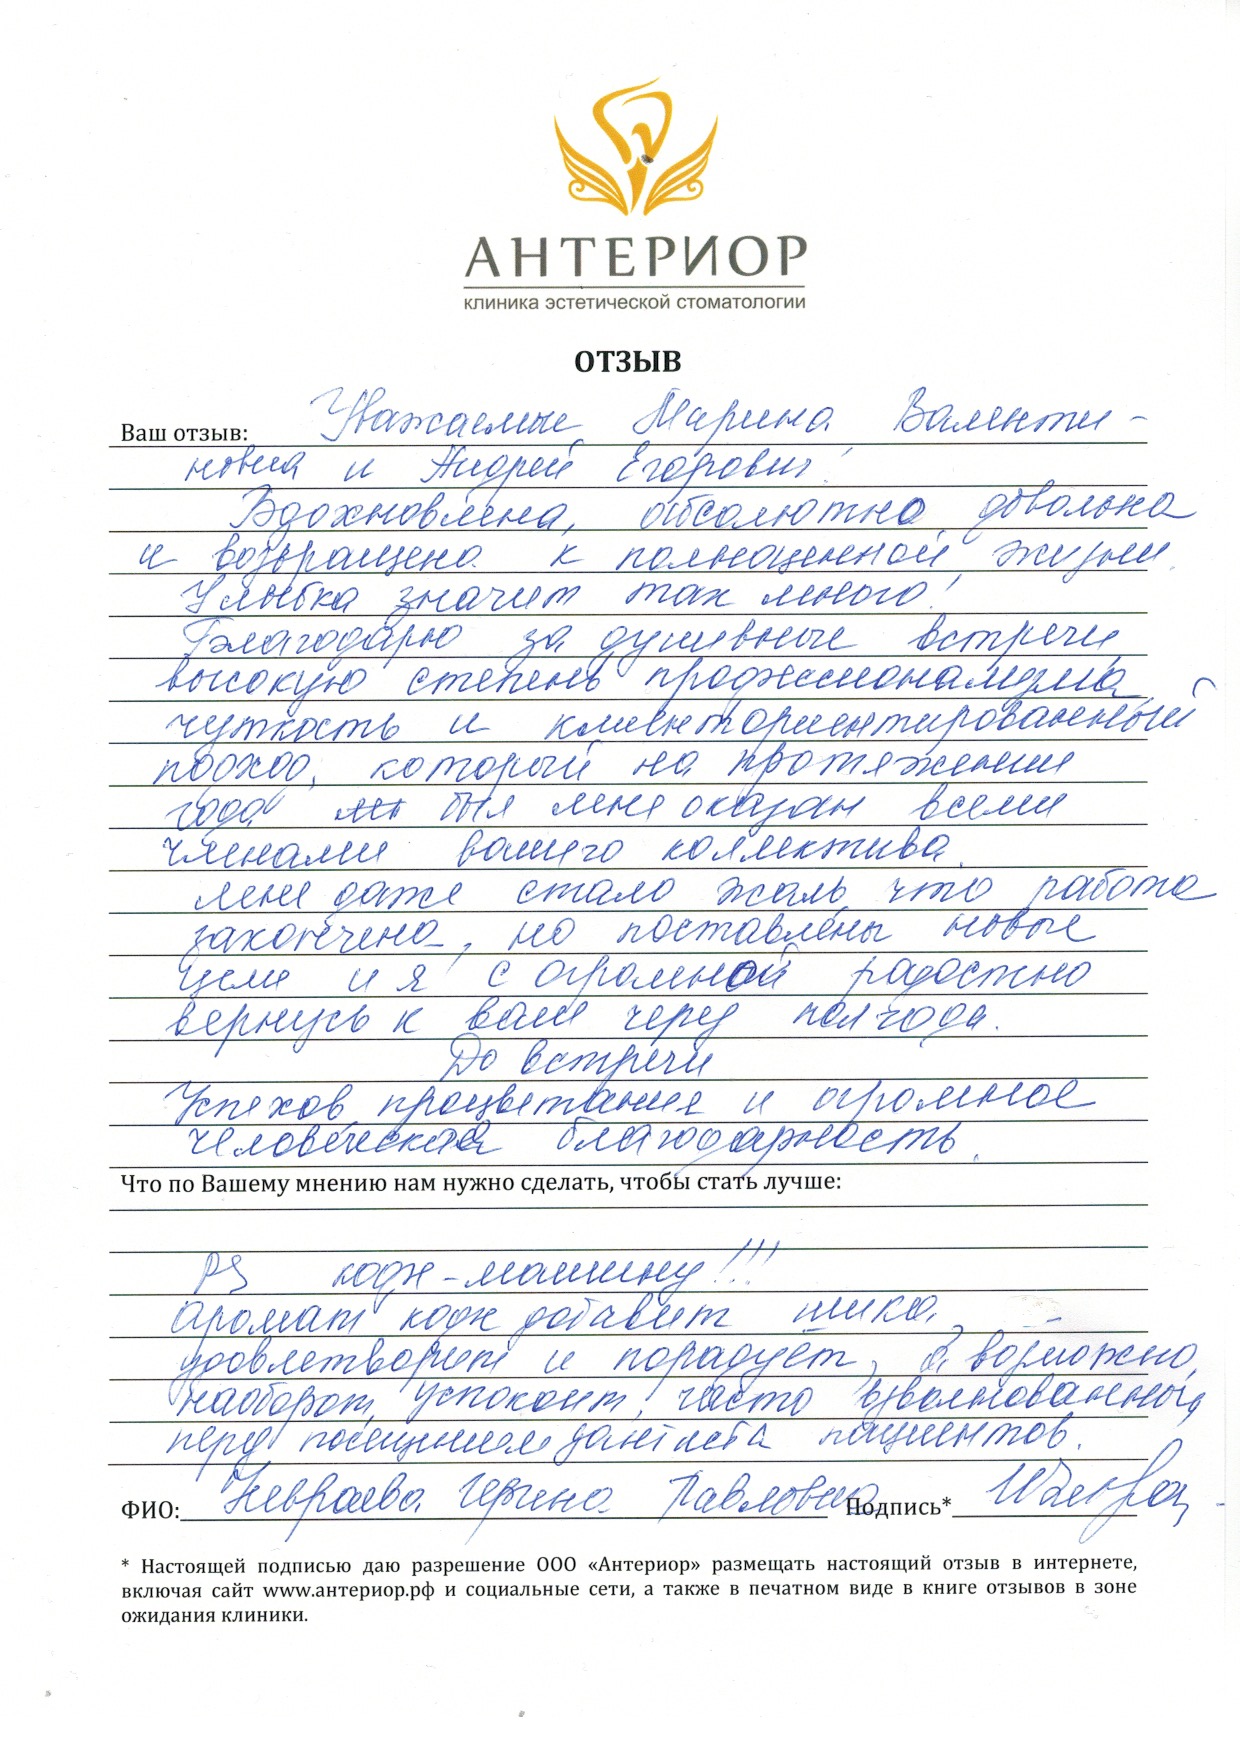 АНТЕРИОР
клиника эстетической стоматологии
ОТЗЫВ
Ваш отзыв: Уважаемые Марина Валенти-
новна и Андрей Егорович!
Вдохновлена, абсолютно довольна
и возвращена к полноценной жизни.
Улыбка значит так много!
Благодарю за душевные встречи,
высокую степень профессионализма,
чуткость и клиенториентированный
подход, который на протяжении
года был мне оказан всеми
членами вашего коллектива.
Мне даже стало жаль, что работа
закончена, но поставлены новые
цели и я с огромной радостью
вернусь к вам через полгода.
До встречи
Успехов, процветания и огромное
человеческая благодарность.
Что по Вашему мнению нам нужно сделать, чтобы стать лучше:
PS кофе-машину!!!
Аромат кофе добавит шика,
удовлетворит и порадует, а возможно,
наоборот, успокоит, часто взволнованных
перед посещением дантиста пациентов.
ФИО: Павловна Подпись*
* Настоящей подписью даю разрешение ООО «Антериор» размещать настоящий отзыв в интернете,
включая сайт www.антериор.рф и социальные сети, а также в печатном виде в книге отзывов в зоне
ожидания клиники.